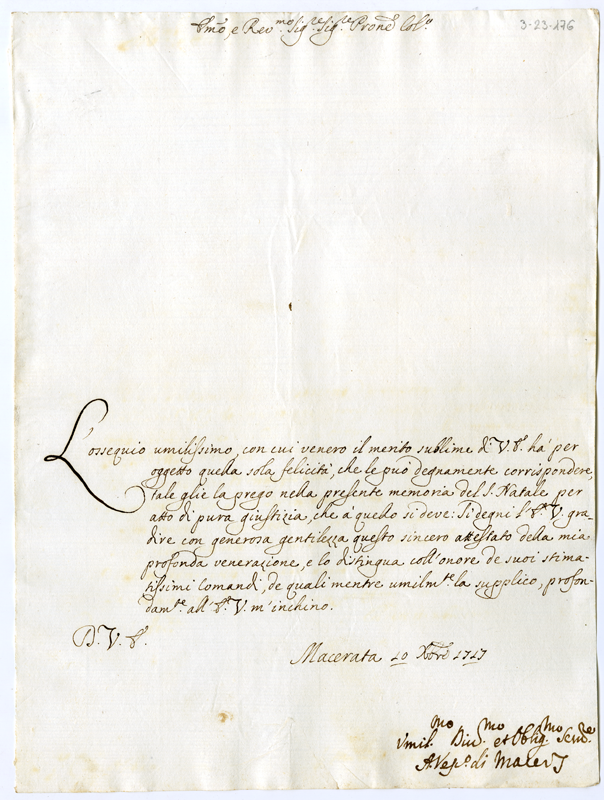 Emo, e Rev.mo Sig.re Sig.re Prone Col.o
3-23-176
L'ossequio umilissimo, con cui venero il merito sublime di V. E. há per
oggetto quella sola felicitá, che le può degnamente corrispondere,
tale glie la prego nella presente memoria del S. Natale per
atto di pura giustizia, che á quello si deve: Si degni l'E. V. gra-
dire con generosa gentilezza questo sincero attestato della mia
profonda venerazione, e lo distingua coll'onore de suoi stima-
tissimi Comandi, de quali mentre umilm.te la supplico, profon-
dam.te all'E. V. m'inchino.
D. V. E.
Macerata 10 Xbre 1717
Umil.mo Div.mo et Obblig.mo Serv.re
A. Vesc.o di Macer.